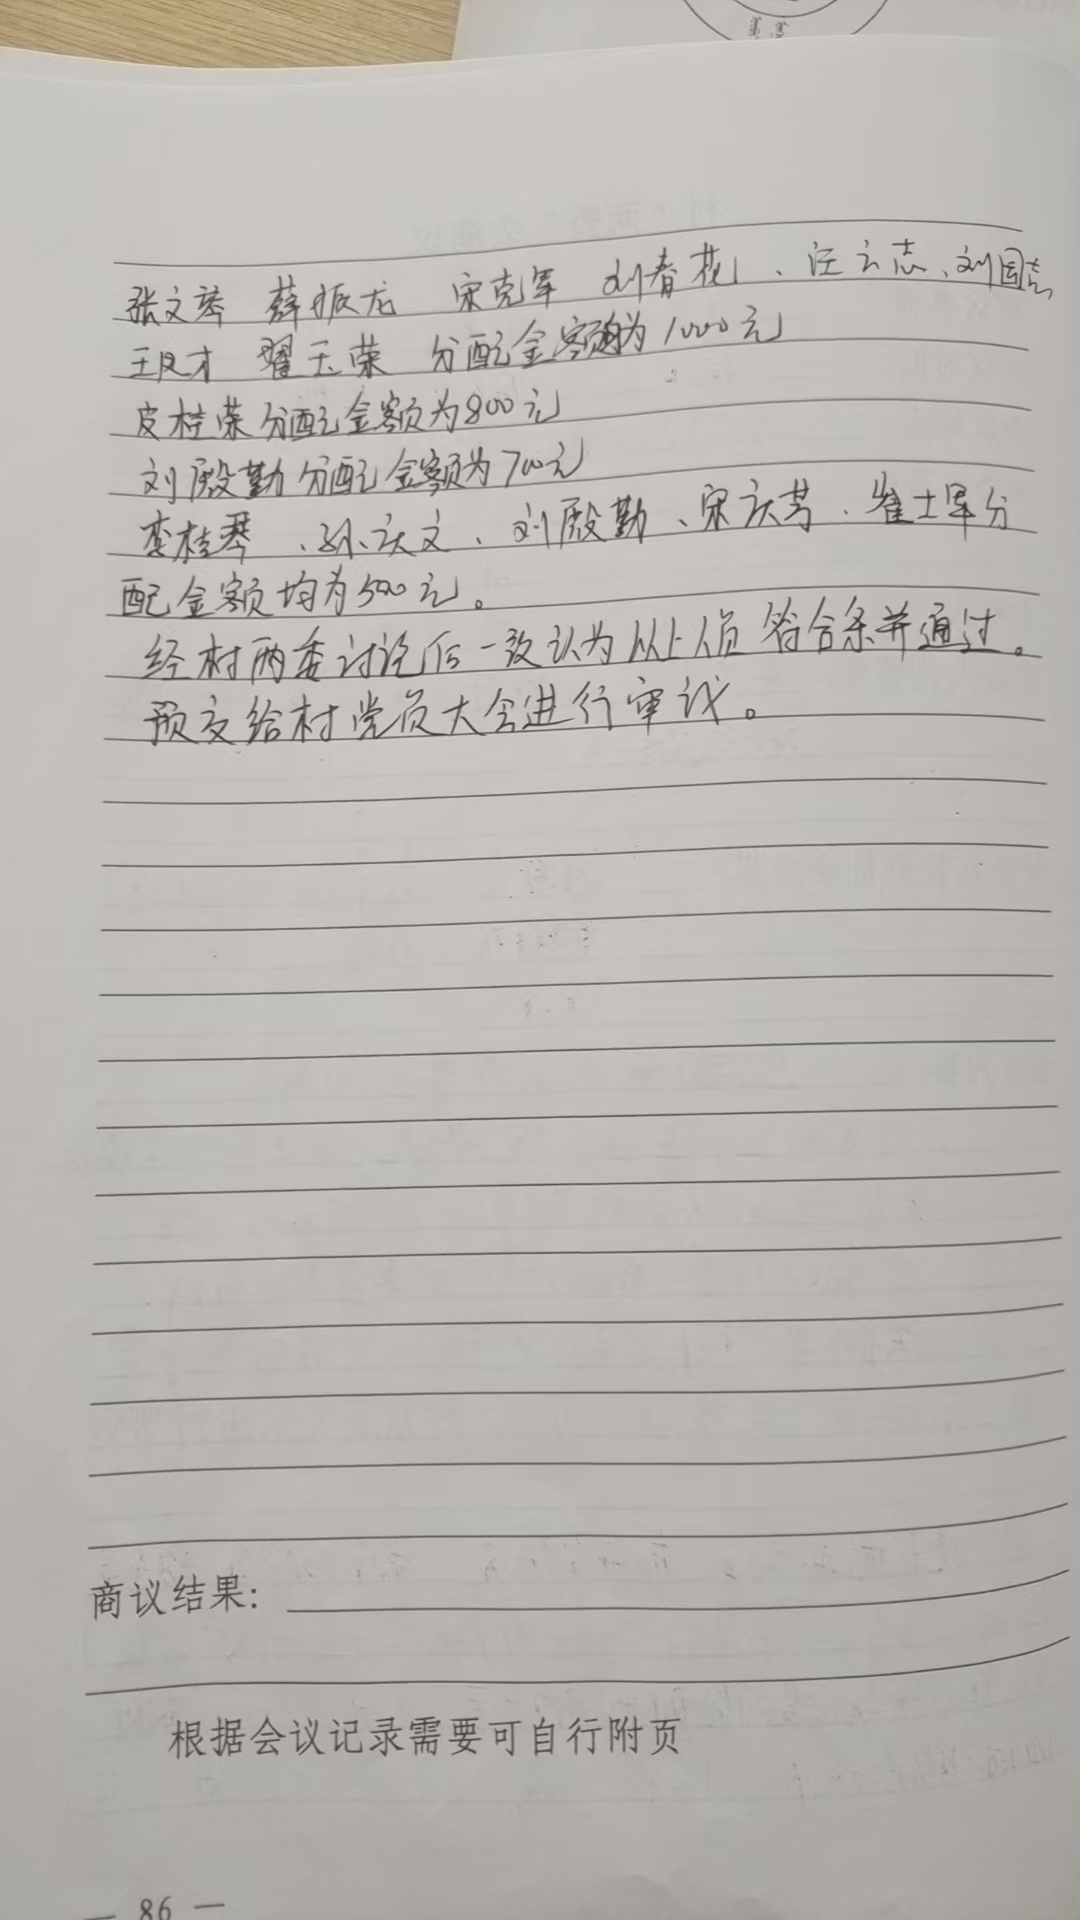 张文琴 薛振龙 宋克军 刘春花、汪云志、刘国志、
王凤才 翟玉荣 分配金额均为1000元
皮桂荣分配金额为800元
刘殿勤分配金额为700元
李桂琴、孙庆文、刘殿勤、宋庆芳、崔士军分
配金额均为500元。
经村两委讨论后一致认为以上人员符合条并通过。
预交给村党员大会进行审议。
商议结果:
根据会议记录需要可自行附页
— 86 —